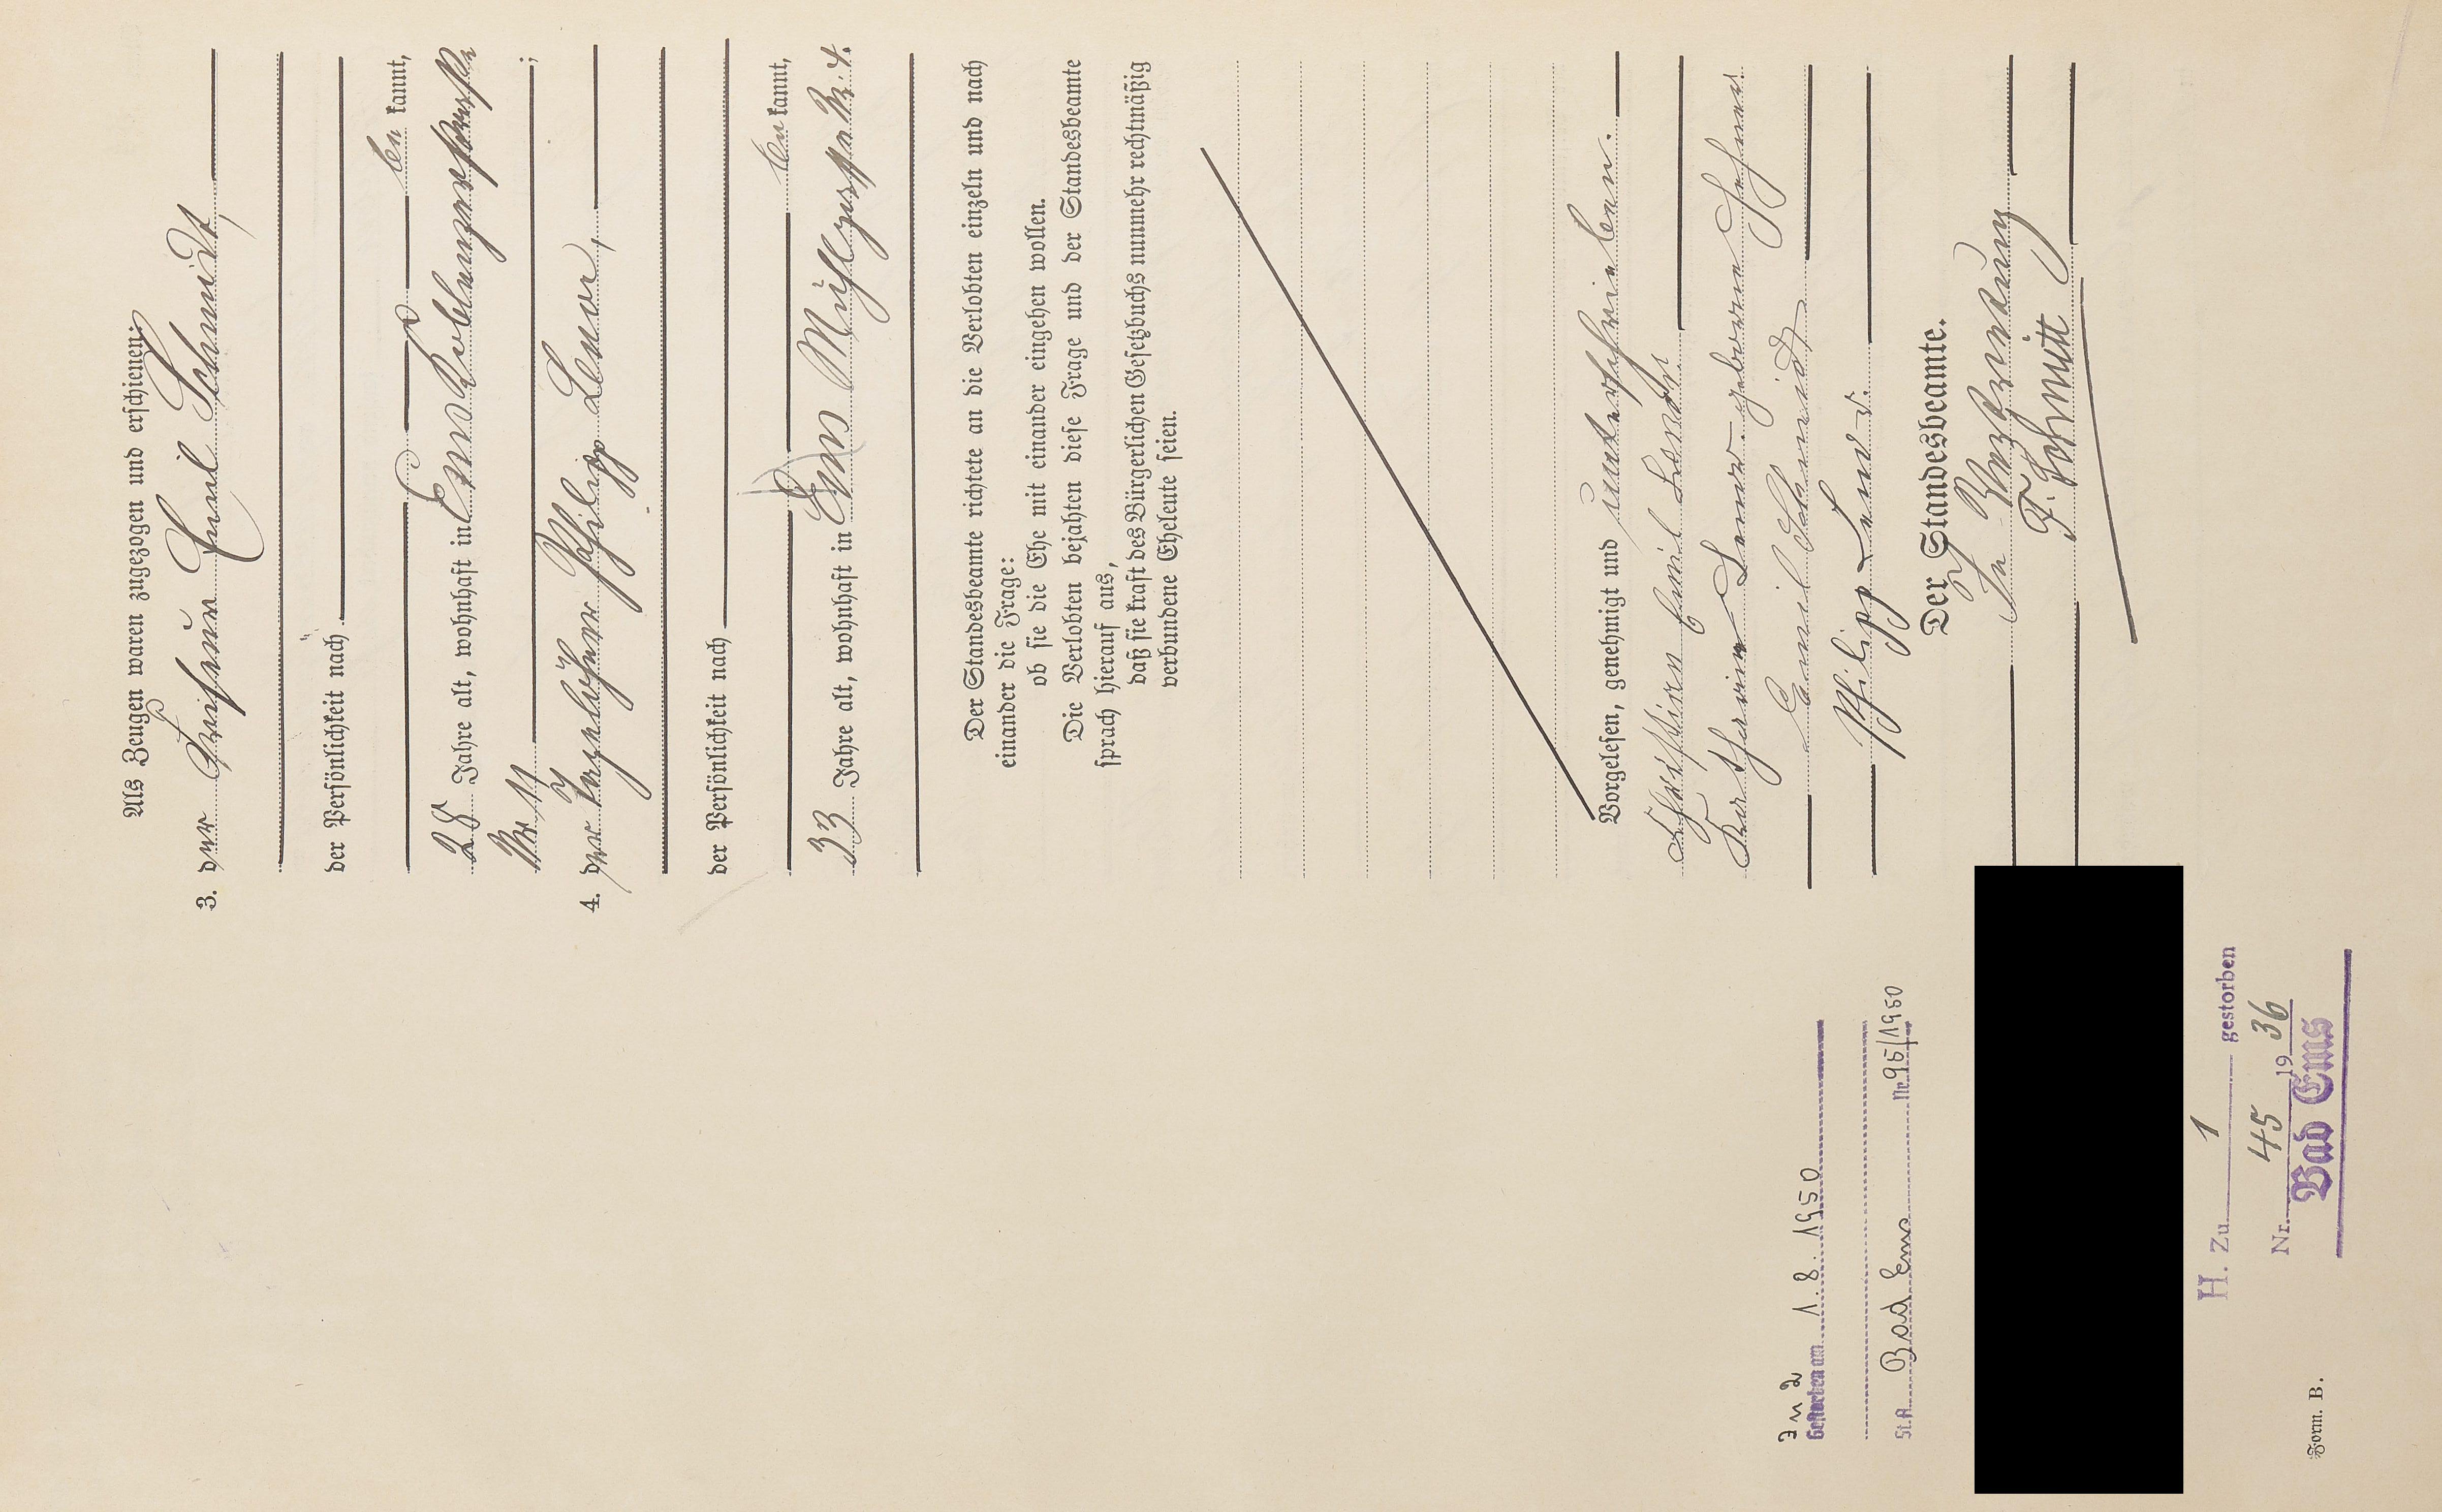 Als Zeugen waren zugezogen und erschienen:
3. der Friseur Emil Schmidt,
der Persönlichkeit nach
be kannt,
28 Jahre alt, wohnhaft in Ems Koblenzerstraße
Nr. 11 ;
4. der Tagelöhner Philipp Lenor,
der Persönlichkeit nach
be kannt,
33 Jahre alt, wohnhaft in Ems
Der Standesbeamte richtete an die Verlobten einzeln und nach
einander die Frage:
ob sie die Ehe mit einander eingehen wollen.
Die Verlobten bejahten diese Frage und der Standesbeamte
sprach hierauf aus,
daß sie kraft des Bürgerlichen Gesetzbuchs nunmehr rechtmäßig
verbundene Eheleute seien.
Vorgelesen, genehmigt und unterschrieben.
Christian Emil
geborene
Emil Schmidt
Philipp
Der Standesbeamte.
In Vertretung
F. Schmitt
Zu 2
Gestorben am 1. 8. 1950
St.A. Bad Ems Nr. 95/1950
H. Zu 1 gestorben
Nr. 45 1936
Bad Ems
Form. B.